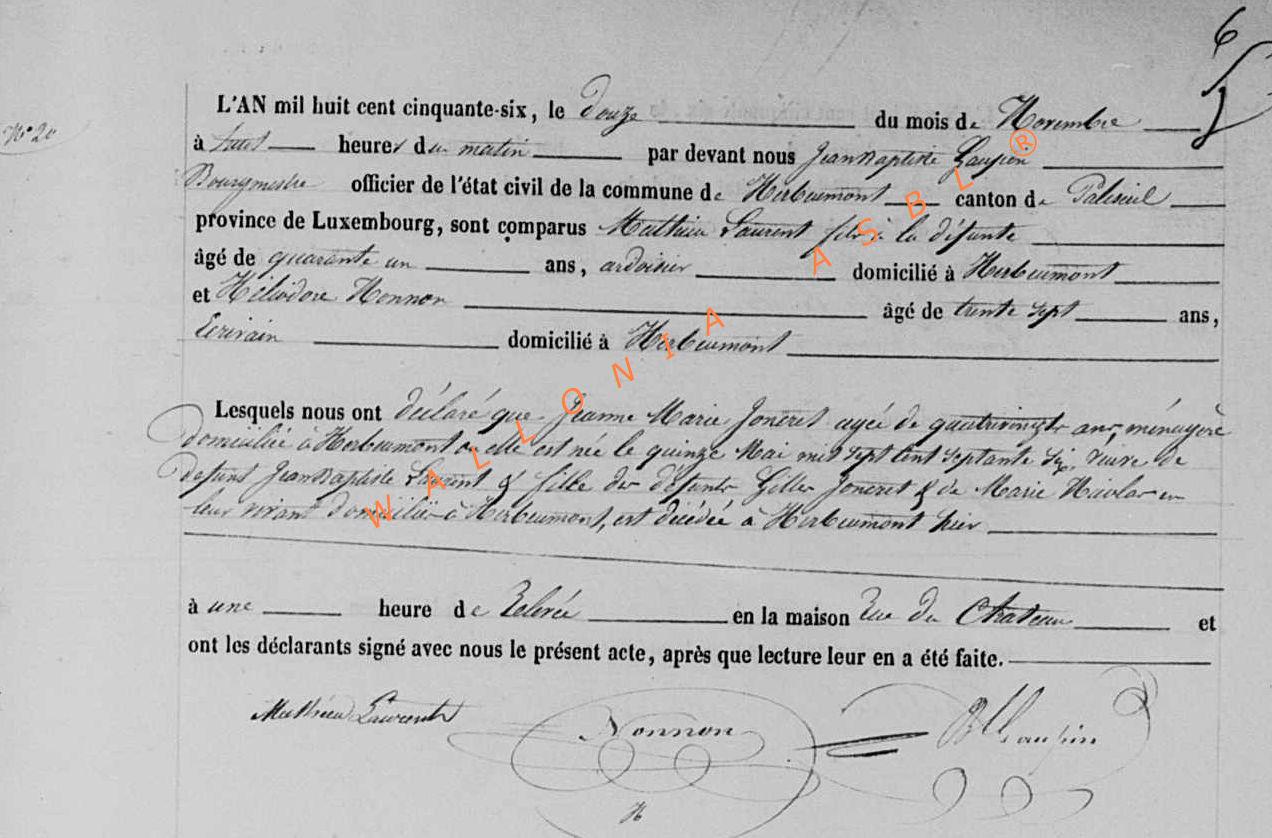 6
N° 20
L'AN mil huit cent cinquante-six, le douze du mois de Novembre
à heures du matin par devant nous Jean Baptiste Laupin
Bourgmestre officier de l'état civil de la commune de Herbeumont canton de Paliseul
province de Luxembourg, sont comparus Mathieu Laurent fils à la défunte
âgé de quarante un ans, ardoisier domicilié à Herbeumont
et Héliodore Nonnon âgé de trente sept ans,
Ecrivain domicilié à Herbeumont
Lesquels nous ont déclaré que Jeanne Marie Joneret agée de quatrevingts ans, ménagère
domiciliée à Herbeumont où elle est née le quinze Mai mil sept cent septante six, veuve de
défunt Jean Baptiste Laurent & fille des défunts Gilles Joneret & de Marie Nicolas en
leur vivant domiciliés à Herbeumont, est décédée à Herbeumont hier
à une heure de Relevée en la maison Rue du Chateau et
ont les déclarants signé avec nous le présent acte, après que lecture leur en a été faite.
Mathieu Laurent Nonnon Laupin
H
WALLONIA ASBL ®